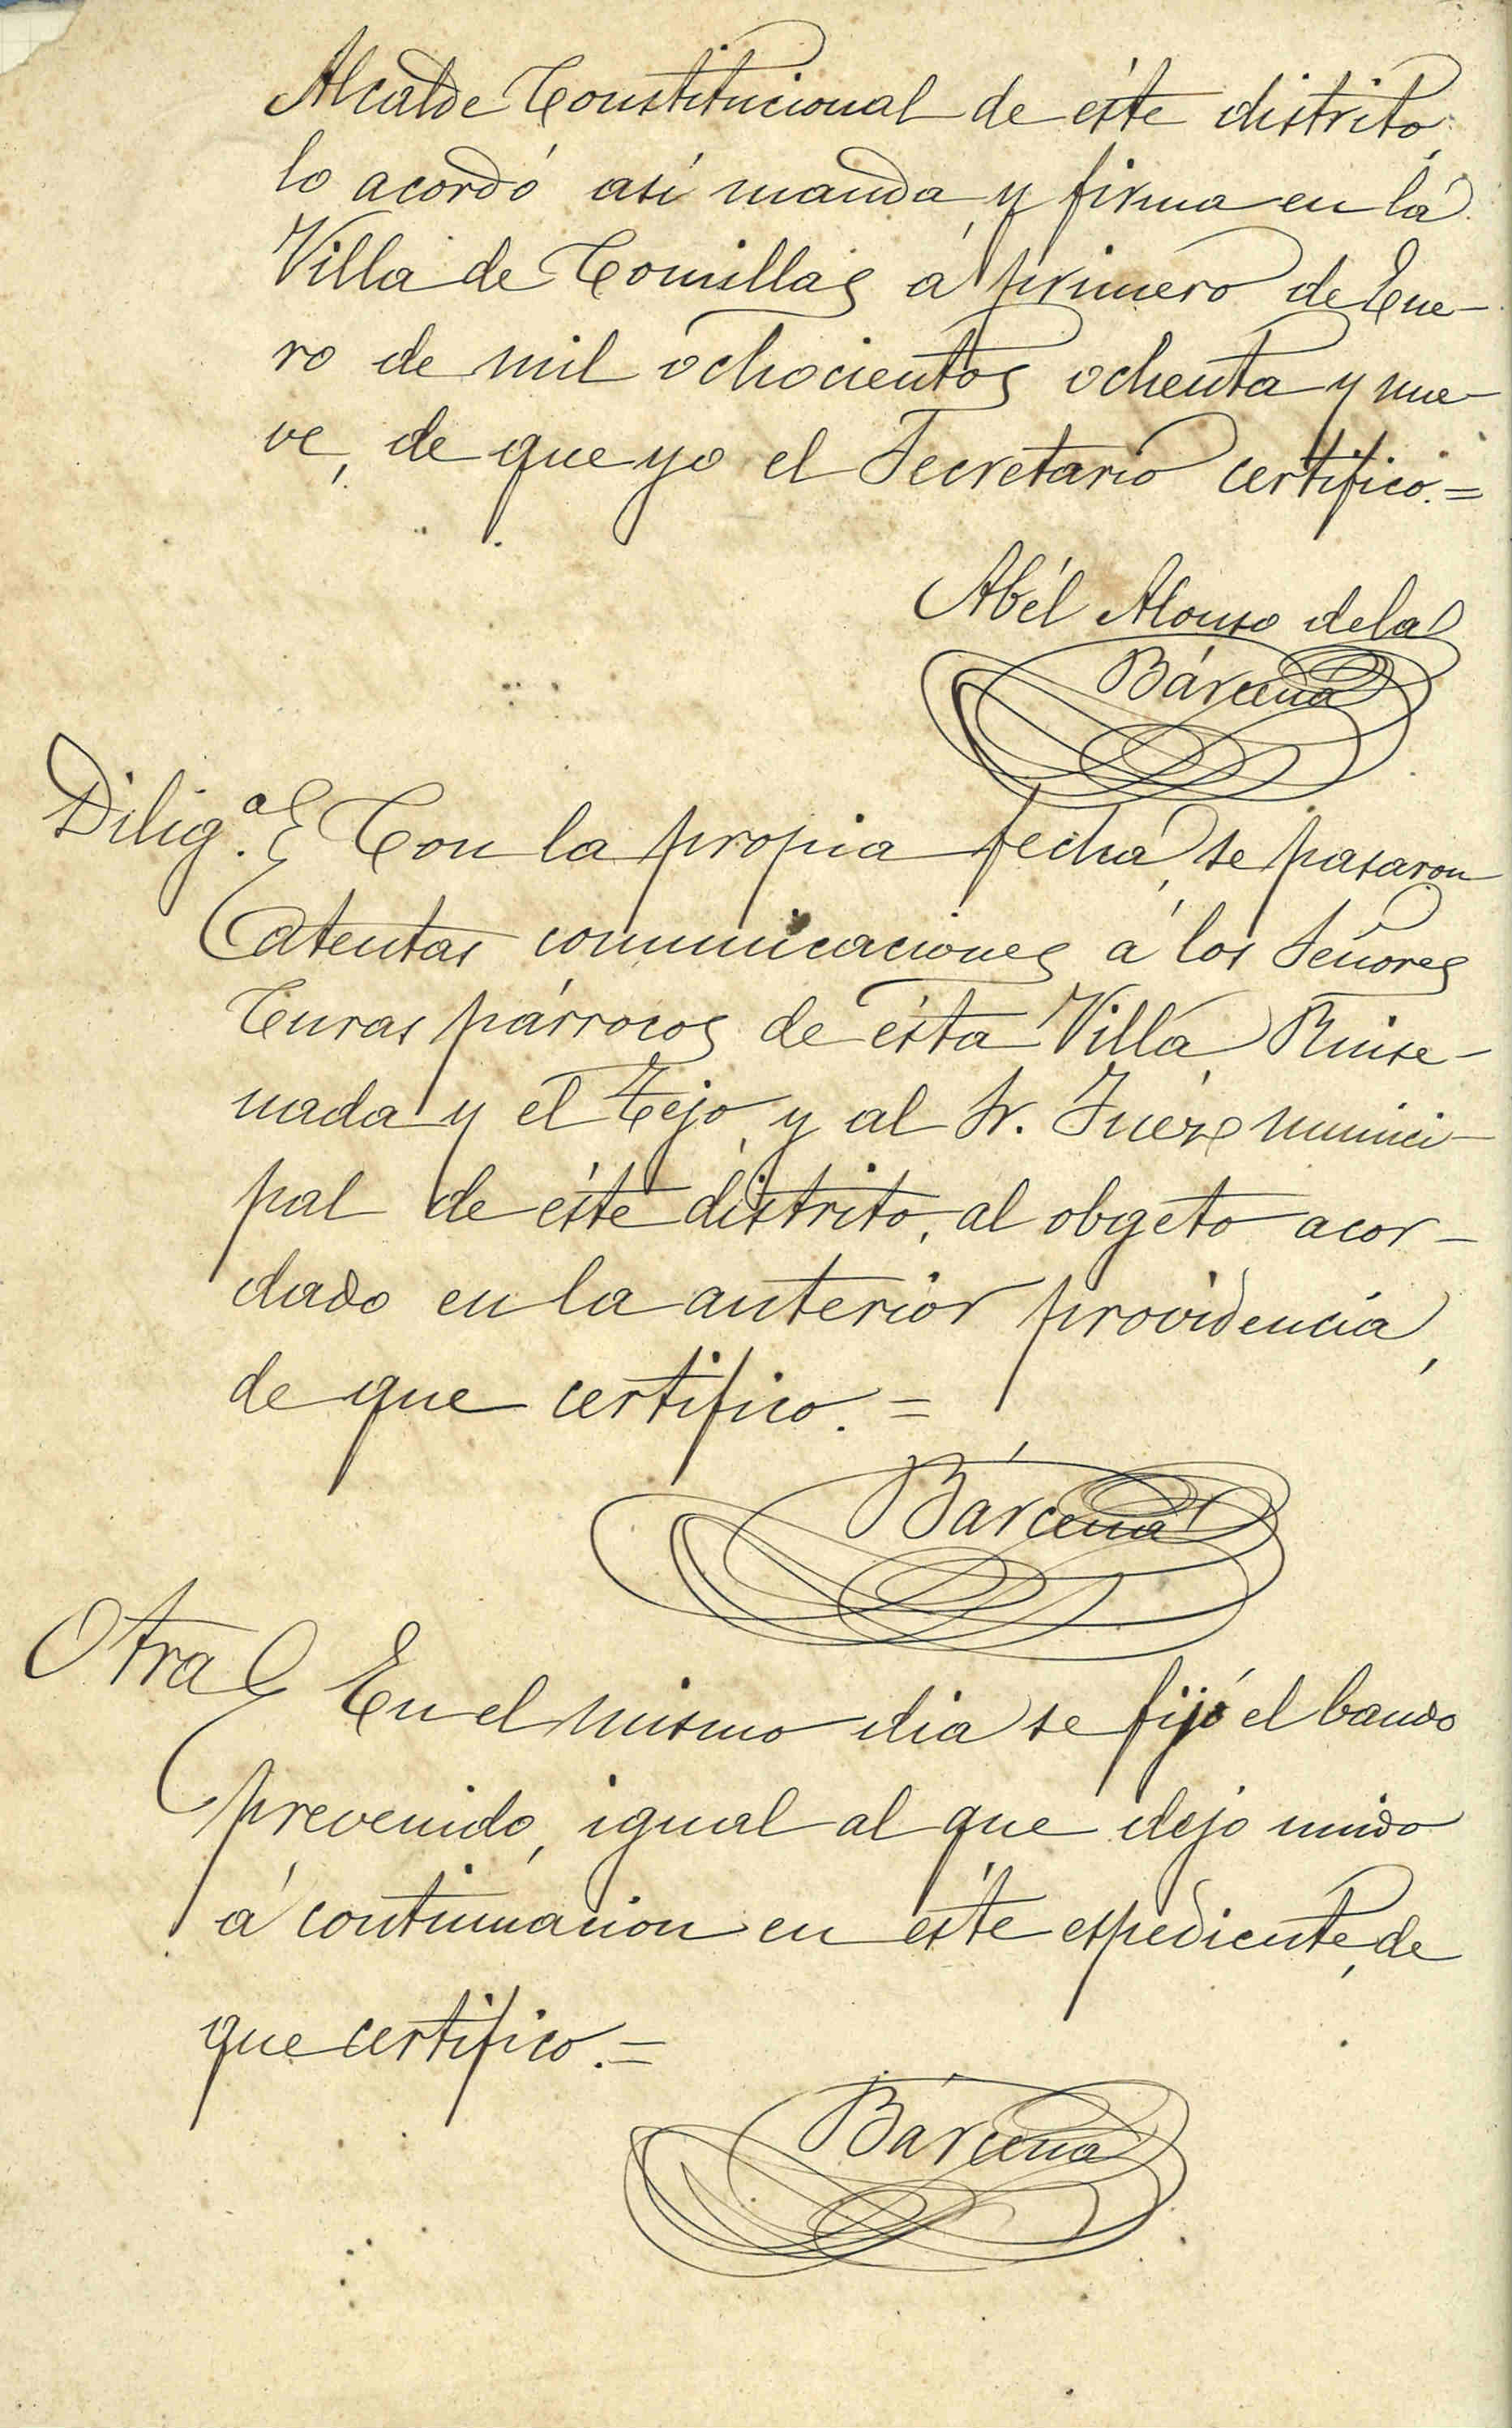 Alcalde Constitucional de éste distrito,
lo acordó así manda y firma en la
Villa de Comillas á primero de Ene-
ro de mil ochocientos ochenta y nue-
ve, de que yo el Secretario certifico.=
Abél Alonso de la
Bárcena
Dilig.ª Con la propia fecha, se pasaron
atentas comunicaciones á los Señores
Curas párrocos de ésta Villa, Ruise-
ñada y el Tejo, y al Sr. Juéz munici-
pal de éste distrito, al obgeto acor-
dado en la anterior providencia,
de que certifico.=
Bárcena
Otra En el mismo dia se fijó el bando
prevenido, igual al que dejo unido
á continuacion en éste espediente, de
que certifico.=
Bárcena